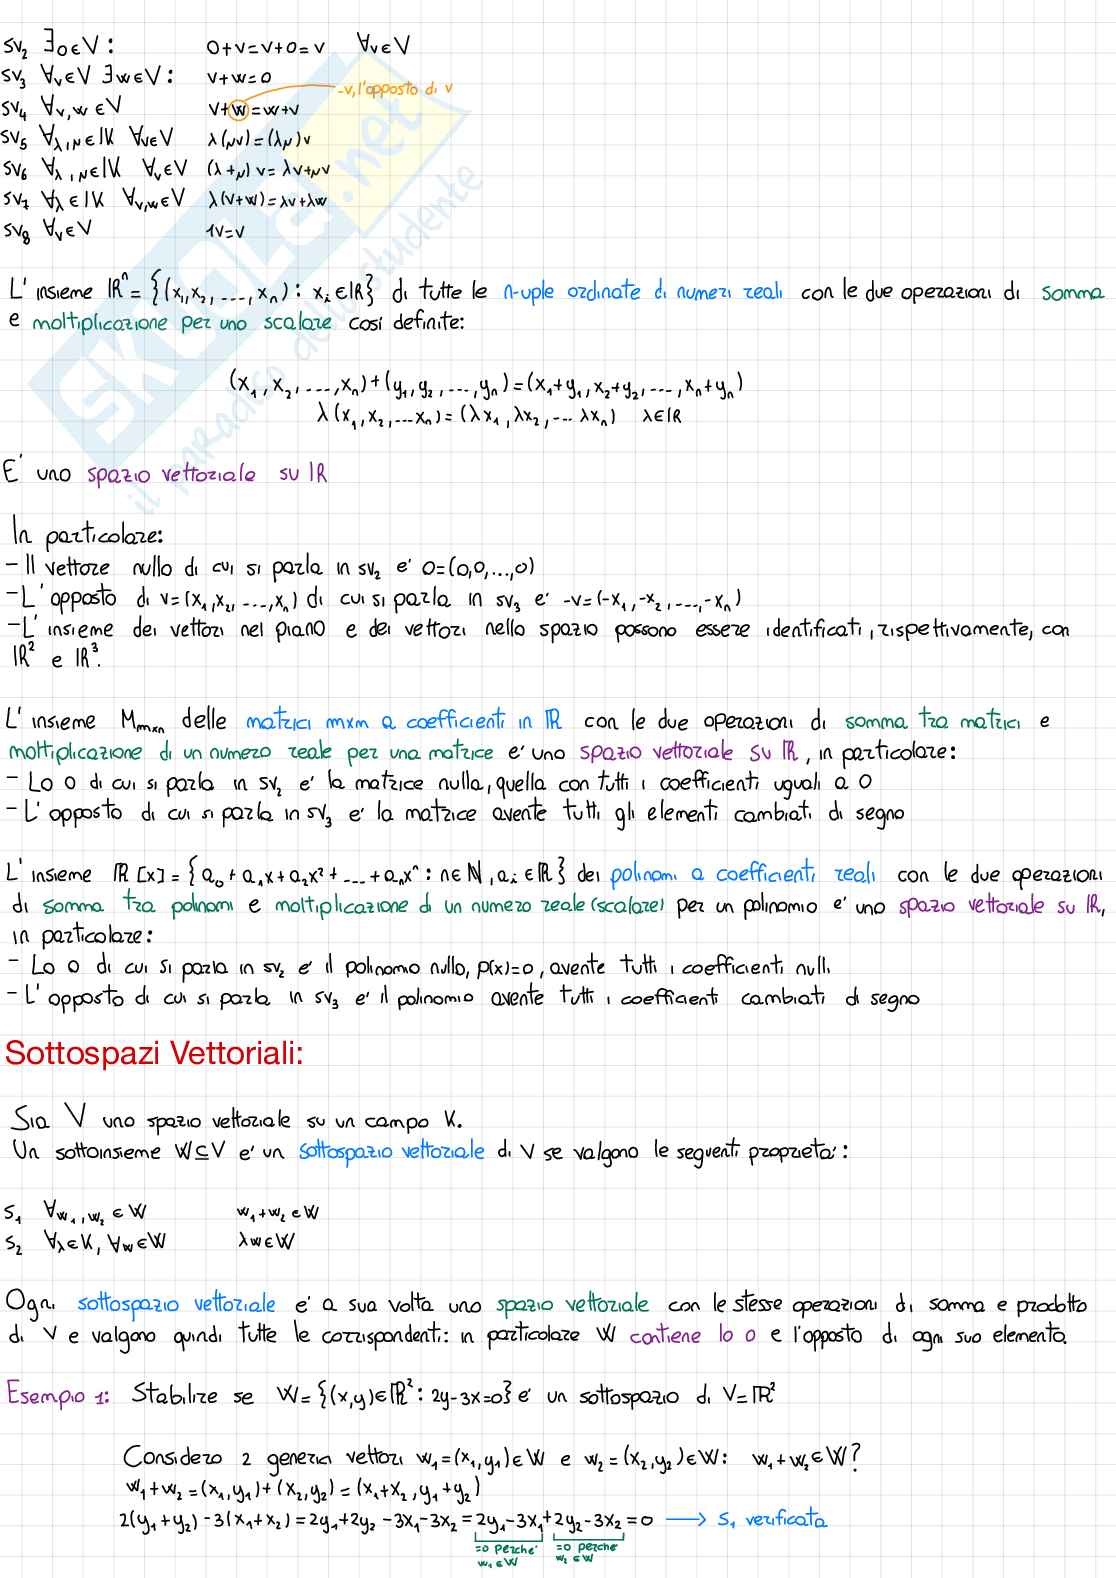 SV₂ ∃0∈V : 0+v=v+0=v ∀v∈V
SV₃ ∀v∈V ∃w∈V : v+w=0
-v, l'opposto di v
SV₄ ∀v,w∈V v+w=w+v
SV₅ ∀λ,μ∈IK ∀v∈V λ(μv)=(λμ)v
SV₆ ∀λ,μ∈IK ∀v∈V (λ+μ)v=λv+μv
SV₇ ∀λ∈IK ∀v,w∈V λ(v+w)=λv+λw
SV₈ ∀v∈V 1v=v
L'insieme ℝⁿ={(x₁,x₂,...,xₙ): xᵢ∈ℝ} di tutte le n-uple ordinate di numeri reali con le due operazioni di somma
e moltiplicazione per uno scalare così definite:
(x₁,x₂,...,xₙ)+(y₁,y₂,...,yₙ)=(x₁+y₁,x₂+y₂,...,xₙ+yₙ)
λ(x₁,x₂,...xₙ)=(λx₁,λx₂,...λxₙ) λ∈ℝ
E' uno spazio vettoriale su ℝ
In particolare:
- Il vettore nullo di cui si parla in SV₂ e' 0=(0,0,...,0)
- L'opposto di v=(x₁,x₂,...,xₙ) di cui si parla in SV₃ e' -v=(-x₁,-x₂,...,-xₙ)
- L'insieme dei vettori nel piano e dei vettori nello spazio possono essere identificati, rispettivamente, con
ℝ² e ℝ³.
L'insieme Mₘₓₙ delle matrici mxm a coefficienti in ℝ con le due operazioni di somma tra matrici e
moltiplicazione di un numero reale per una matrice e' uno spazio vettoriale su ℝ, in particolare:
- Lo 0 di cui si parla in SV₂ e' la matrice nulla, quella con tutti i coefficienti uguali a 0
- L'opposto di cui si parla in SV₃ e' la matrice avente tutti gli elementi cambiati di segno
L'insieme ℝ[x]={a₀+a₁x+a₂x²+...+aₙxⁿ: n∈ℕ, aᵢ∈ℝ} dei polinomi a coefficienti reali con le due operazioni
di somma tra polinomi e moltiplicazione di un numero reale (scalare) per un polinomio e' uno spazio vettoriale su ℝ,
in particolare:
- Lo 0 di cui si parla in SV₂ e' il polinomo nullo, p(x)=0, avente tutti i coefficienti nulli
- L'opposto di cui si parla in SV₃ e' il polinomio avente tutti i coefficienti cambiati di segno
Sottospazi Vettoriali:
Sia V uno spazio vettoriale su un campo K.
Un sottoinsieme W⊆V e' un sottospazio vettoriale di V se valgono le seguenti proprieta':
S₁ ∀w₁,w₂∈W w₁+w₂∈W
S₂ ∀λ∈K, ∀w∈W λw∈W
Ogni sottospazio vettoriale e' a sua volta uno spazio vettoriale con le stesse operazioni di somma e prodotto
di V e valgono quindi tutte le corrispondenti: in particolare W contiene lo 0 e l'opposto di ogni suo elemento.
Esempio 1: Stabilire se W={(x,y)∈ℝ²: 2y-3x=0} e' un sottospazio di V=ℝ²
Considero 2 generici vettori w₁=(x₁,y₁)∈W e w₂=(x₂,y₂)∈W: w₁+w₂∈W?
w₁+w₂=(x₁,y₁)+(x₂,y₂)=(x₁+x₂,y₁+y₂)
2(y₁+y₂)-3(x₁+x₂)=2y₁+2y₂-3x₁-3x₂=2y₁-3x₁+2y₂-3x₂=0 → S₁ verificata
=0 perche' =0 perche'
w₁∈W w₂∈W
SKUOLA.net
il paradiso dello studente